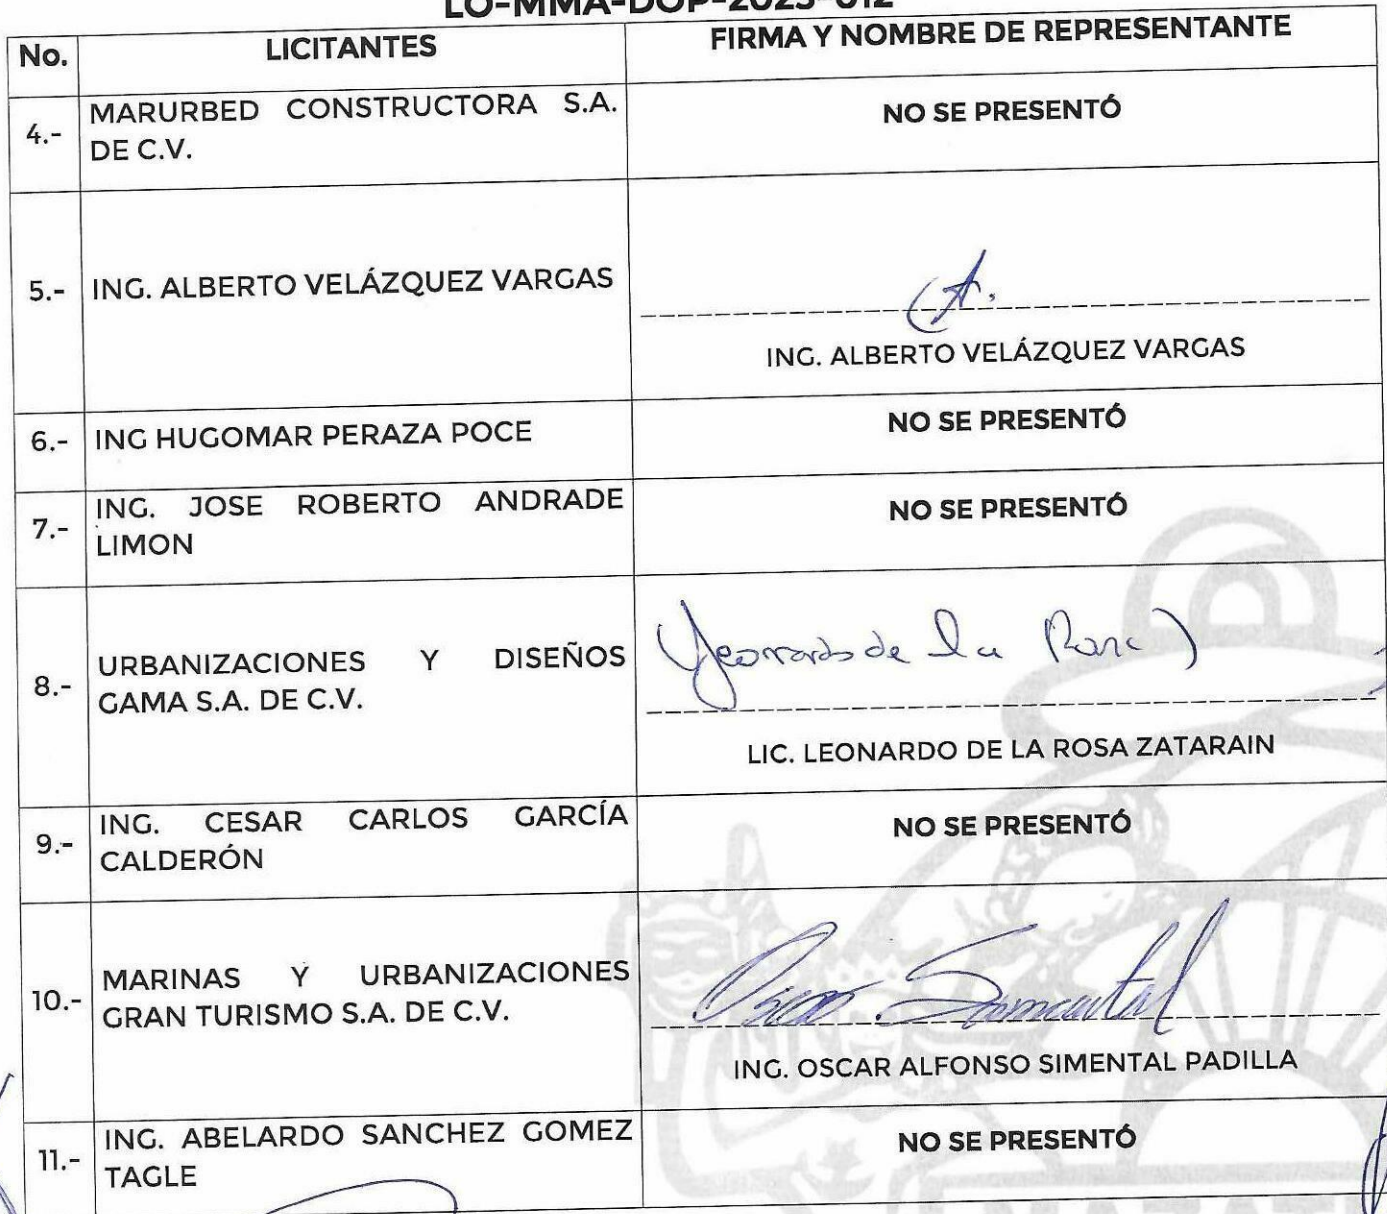 LO-MMA-DOP-2023-012
No. LICITANTES FIRMA Y NOMBRE DE REPRESENTANTE
4.- MARURBED CONSTRUCTORA S.A. NO SE PRESENTÓ
DE C.V.
5.- ING. ALBERTO VELÁZQUEZ VARGAS
ING. ALBERTO VELÁZQUEZ VARGAS
6.- ING HUGOMAR PERAZA POCE NO SE PRESENTÓ
7.- ING. JOSE ROBERTO ANDRADE NO SE PRESENTÓ
LIMON
Leonardo de la Rosa
8.- URBANIZACIONES Y DISEÑOS
GAMA S.A. DE C.V.
LIC. LEONARDO DE LA ROSA ZATARAIN
9.- ING. CESAR CARLOS GARCÍA NO SE PRESENTÓ
CALDERÓN
10.- MARINAS Y URBANIZACIONES
GRAN TURISMO S.A. DE C.V.
Oscar Simental
ING. OSCAR ALFONSO SIMENTAL PADILLA
11.- ING. ABELARDO SANCHEZ GOMEZ NO SE PRESENTÓ
TAGLE